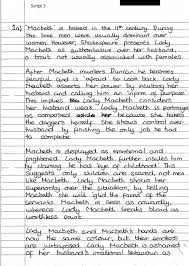 Script 3
1a) Macbeth is based in the 11th century. During
the time men were usually dominant over
women. However, Shakespeare presents Lady
Macbeth as authoritative over her husband,
a trait not usually associated with females.
After Macbeth murders Duncan he becomes
fearful and is 'afraid to look back'. Lady
Macbeth asserts her power by insulting her
husband and calling him an 'infirm of purpose'.
This implies Lady Macbeth considers
her husband weak. Lady Macbeth is portrayed
as composed because she takes
the daggers herself. She should control over
husband by finishing the only job he had
to complete.
Macbeth is displayed as emotional and
frightened. Lady Macbeth further insults him
by claiming he has 'eye of childhood'. This
suggests only children are scared, not men
like Macbeth. Lady Macbeth shows her
superiority over the situation, by telling
Macbeth she will 'gild the faces' of the
servants. Macbeth is seen as cowardly,
whereas Lady Macbeth
Lady Macbeth and Macbeth's hands are
now the same colour, but their
are juxtaposed. Lady Macbeth is ashamed
of her husband's irrational behaviour as